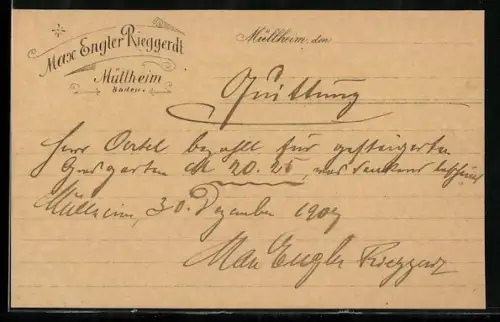 Max Engler Rieggerdt
Müllheim
Baden.
Müllheim, den
Quittung
Herr Oertel bezahlt für gesteigerten
Grasgarten M 20.25, was dankend bescheint
Müllheim, 30. Dezember 1907
Max Engler Rieggerdt